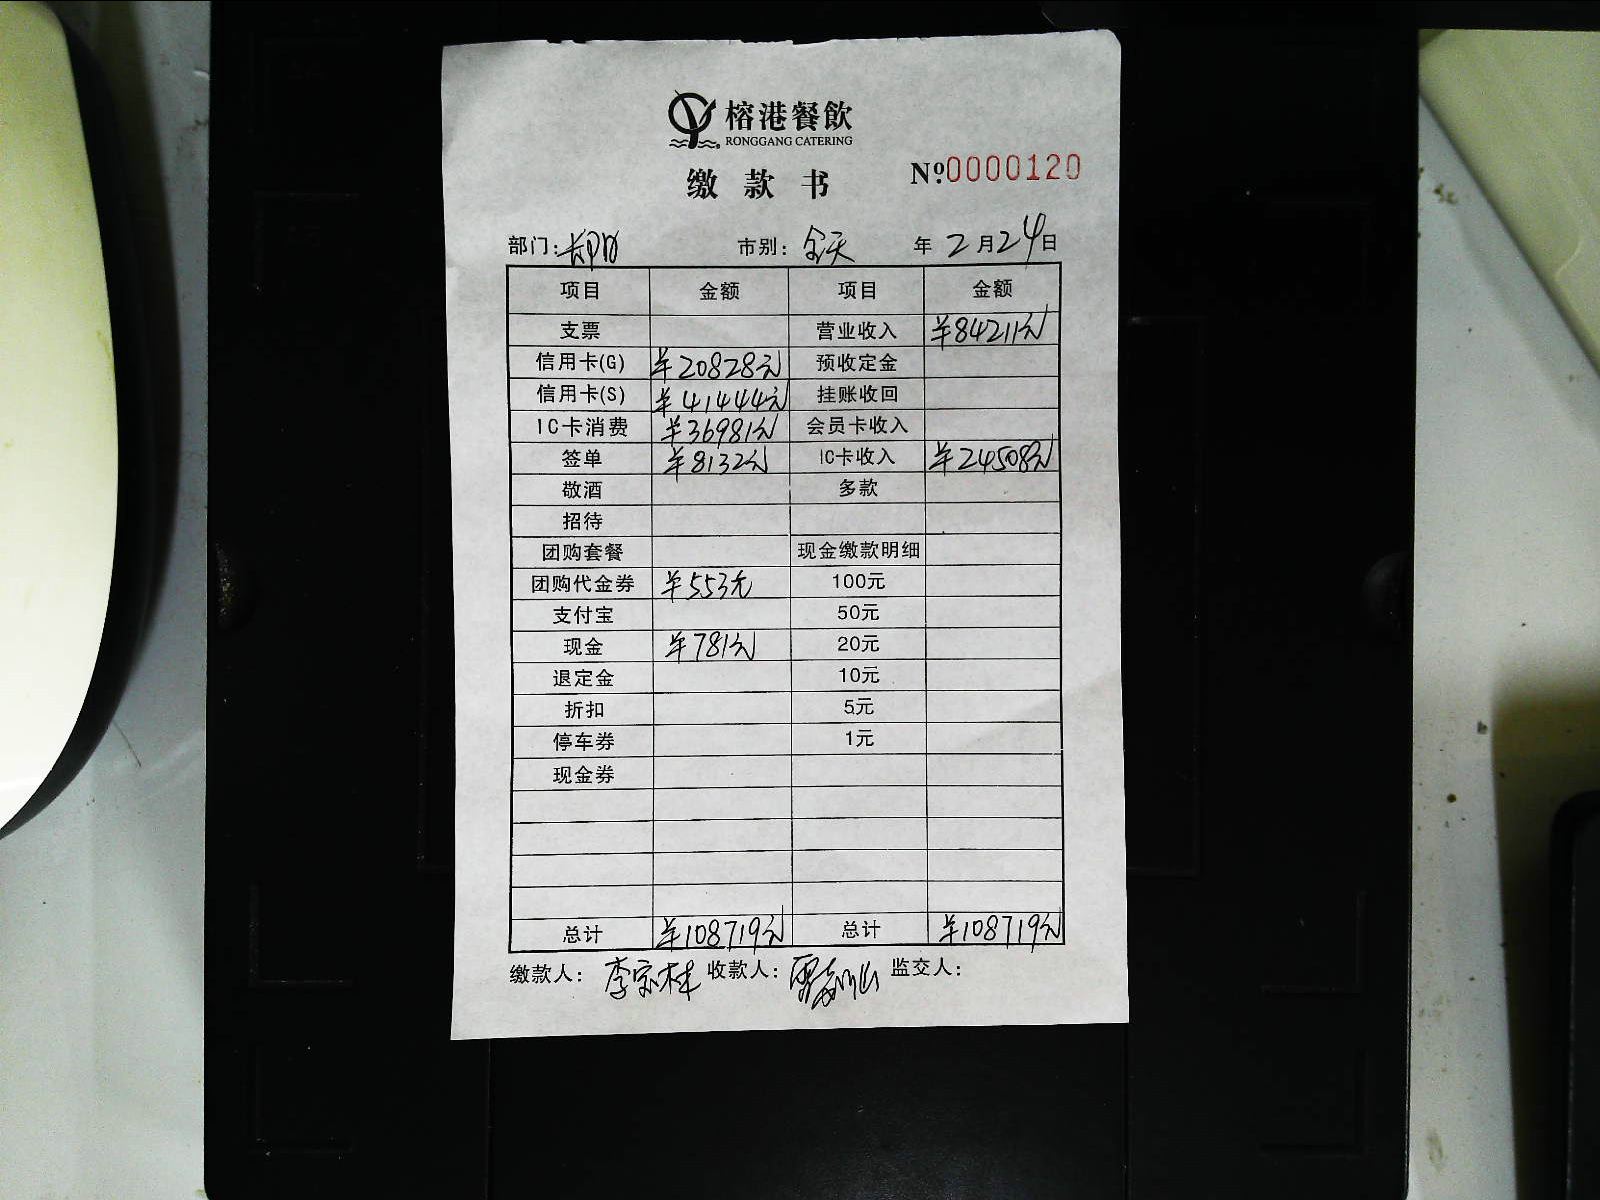 榕港餐飲
RONGGANG CATERING
缴款书
Nº.0000120
部门: 市别: 全天 年 2 月 24 日
项目 金额 项目 金额
支票 营业收入 ¥84211元
信用卡(G) ¥20828元 预收定金
信用卡(S) ¥41444元 挂账收回
IC卡消费 ¥36981元 会员卡收入
签单 ¥8132元 IC卡收入 ¥24508元
敬酒 多款
招待
团购套餐 现金缴款明细
团购代金券 ¥553元 100元
支付宝 50元
现金 ¥781元 20元
退定金 10元
折扣 5元
停车券 1元
现金券
总计 ¥108719元 总计 ¥108719元
缴款人: 李宗林 收款人: 监交人: